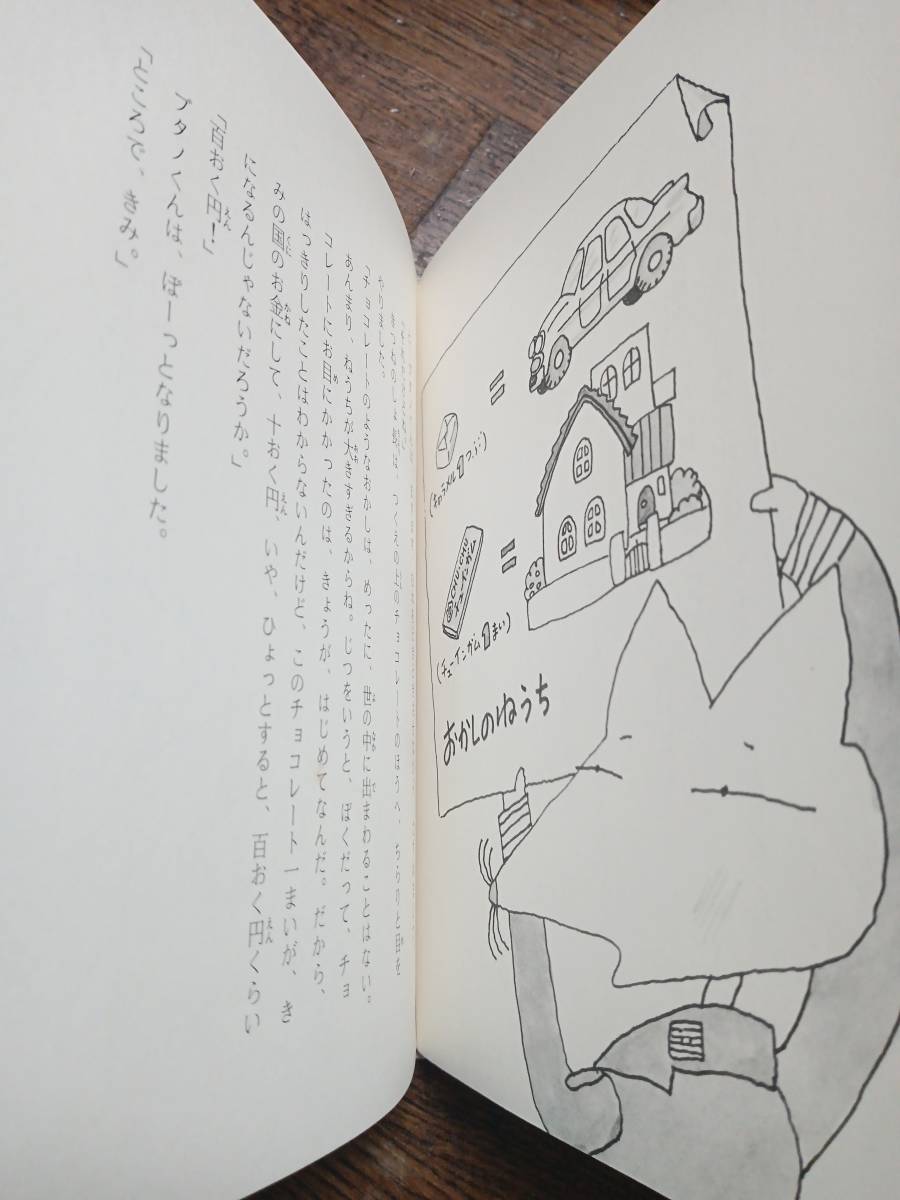 やりました。
「チョコレートのようなおかしは、めったに、世の中に出まわることはない。
あんまり、ねうちが大きすぎるからね。じつをいうと、ぼくだって、チョ
コレートにお目にかかったのは、きょうが、はじめてなんだ。だから、
はっきりしたことはわからないんだけど、このチョコレート一まいが、き
みの国のお金にして、十おく円、いや、ひょっとすると、百おく円くらい
になるんじゃないだろうか。」
「百おく円！」
ブタノくんは、ぼーっとなりました。
「ところで、きみ。」
＝
(キャラメル1つぶ)
＝
(チューインガム1まい)
おかしのねうち